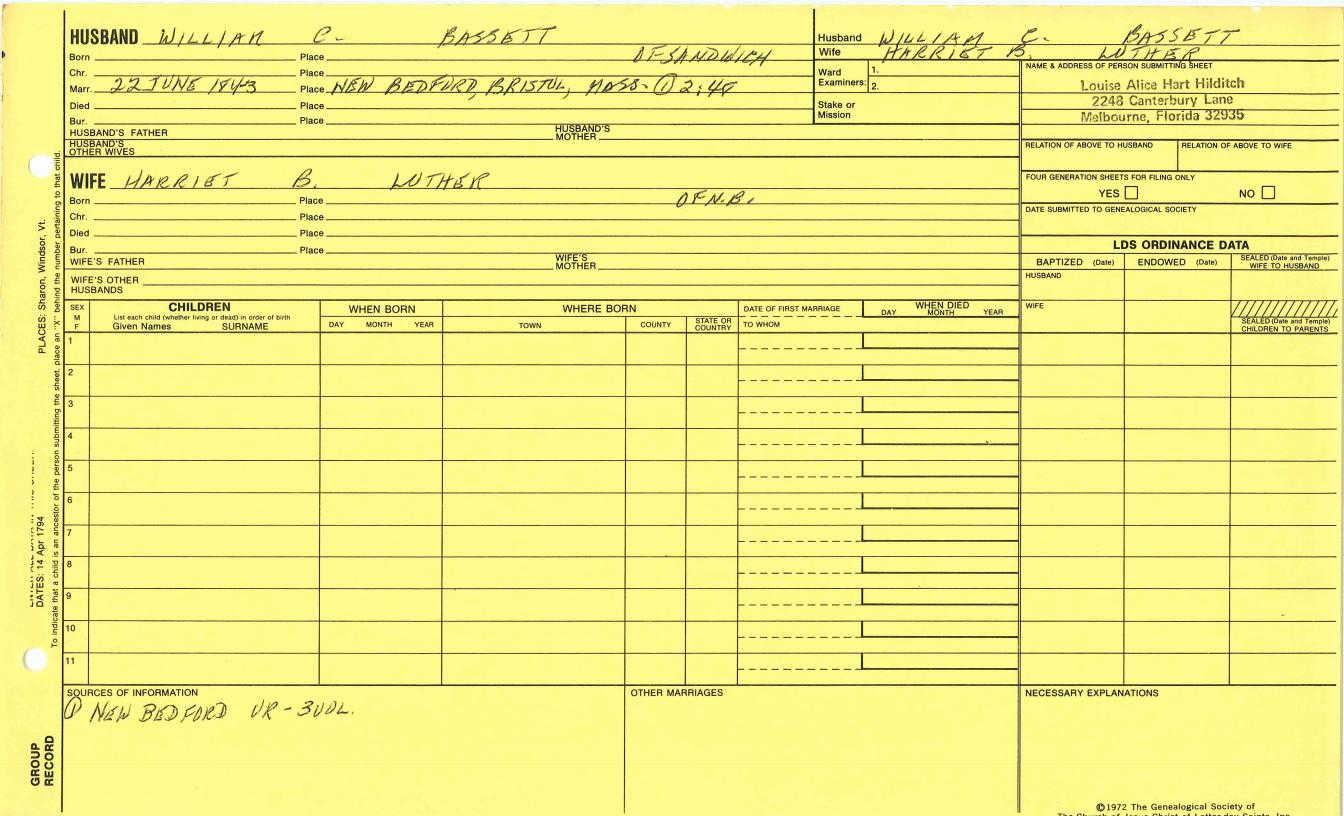 HUSBAND WILLIAM C. BASSETT
Born Place OF SANDWICH
Chr. Place
Marr. 22 JUNE 1843 Place NEW BEDFORD, BRISTOL, MASS. ① 2:48
Died Place
Bur. Place
HUSBAND'S FATHER HUSBAND'S MOTHER
HUSBAND'S OTHER WIVES
WIFE HARRIET B. LUTHER
Born Place OF N.B.
Chr. Place
Died Place
Bur. Place
WIFE'S FATHER WIFE'S MOTHER
WIFE'S OTHER HUSBANDS
Husband WILLIAM C. BASSETT
Wife HARRIET B. LUTHER
Ward Examiners: 1.
2.
Stake or Mission
NAME & ADDRESS OF PERSON SUBMITTING SHEET
Louise Alice Hart Hilditch
2248 Canterbury Lane
Melbourne, Florida 32935
RELATION OF ABOVE TO HUSBAND RELATION OF ABOVE TO WIFE
FOUR GENERATION SHEETS FOR FILING ONLY
YES NO
DATE SUBMITTED TO GENEALOGICAL SOCIETY
LDS ORDINANCE DATA
BAPTIZED (Date) ENDOWED (Date) SEALED (Date and Temple) WIFE TO HUSBAND
HUSBAND
WIFE
SEALED (Date and Temple) CHILDREN TO PARENTS
SEX M F
CHILDREN
List each child (whether living or dead) in order of birth
Given Names SURNAME
WHEN BORN
DAY MONTH YEAR
WHERE BORN
TOWN COUNTY STATE OR COUNTRY
DATE OF FIRST MARRIAGE
TO WHOM
WHEN DIED
DAY MONTH YEAR
1
2
3
4
5
6
7
8
9
10
11
SOURCES OF INFORMATION
① NEW BEDFORD VR - 3 VOL.
OTHER MARRIAGES
NECESSARY EXPLANATIONS
©1972 The Genealogical Society of
The Church of Jesus Christ of Latter-day Saints, Inc.
PLACES: Sharon, Windsor, Vt.
DATES: 14 Apr 1794
To indicate that a child is an ancestor of the person submitting the sheet, place an "X" behind the number pertaining to that child.
GROUP RECORD